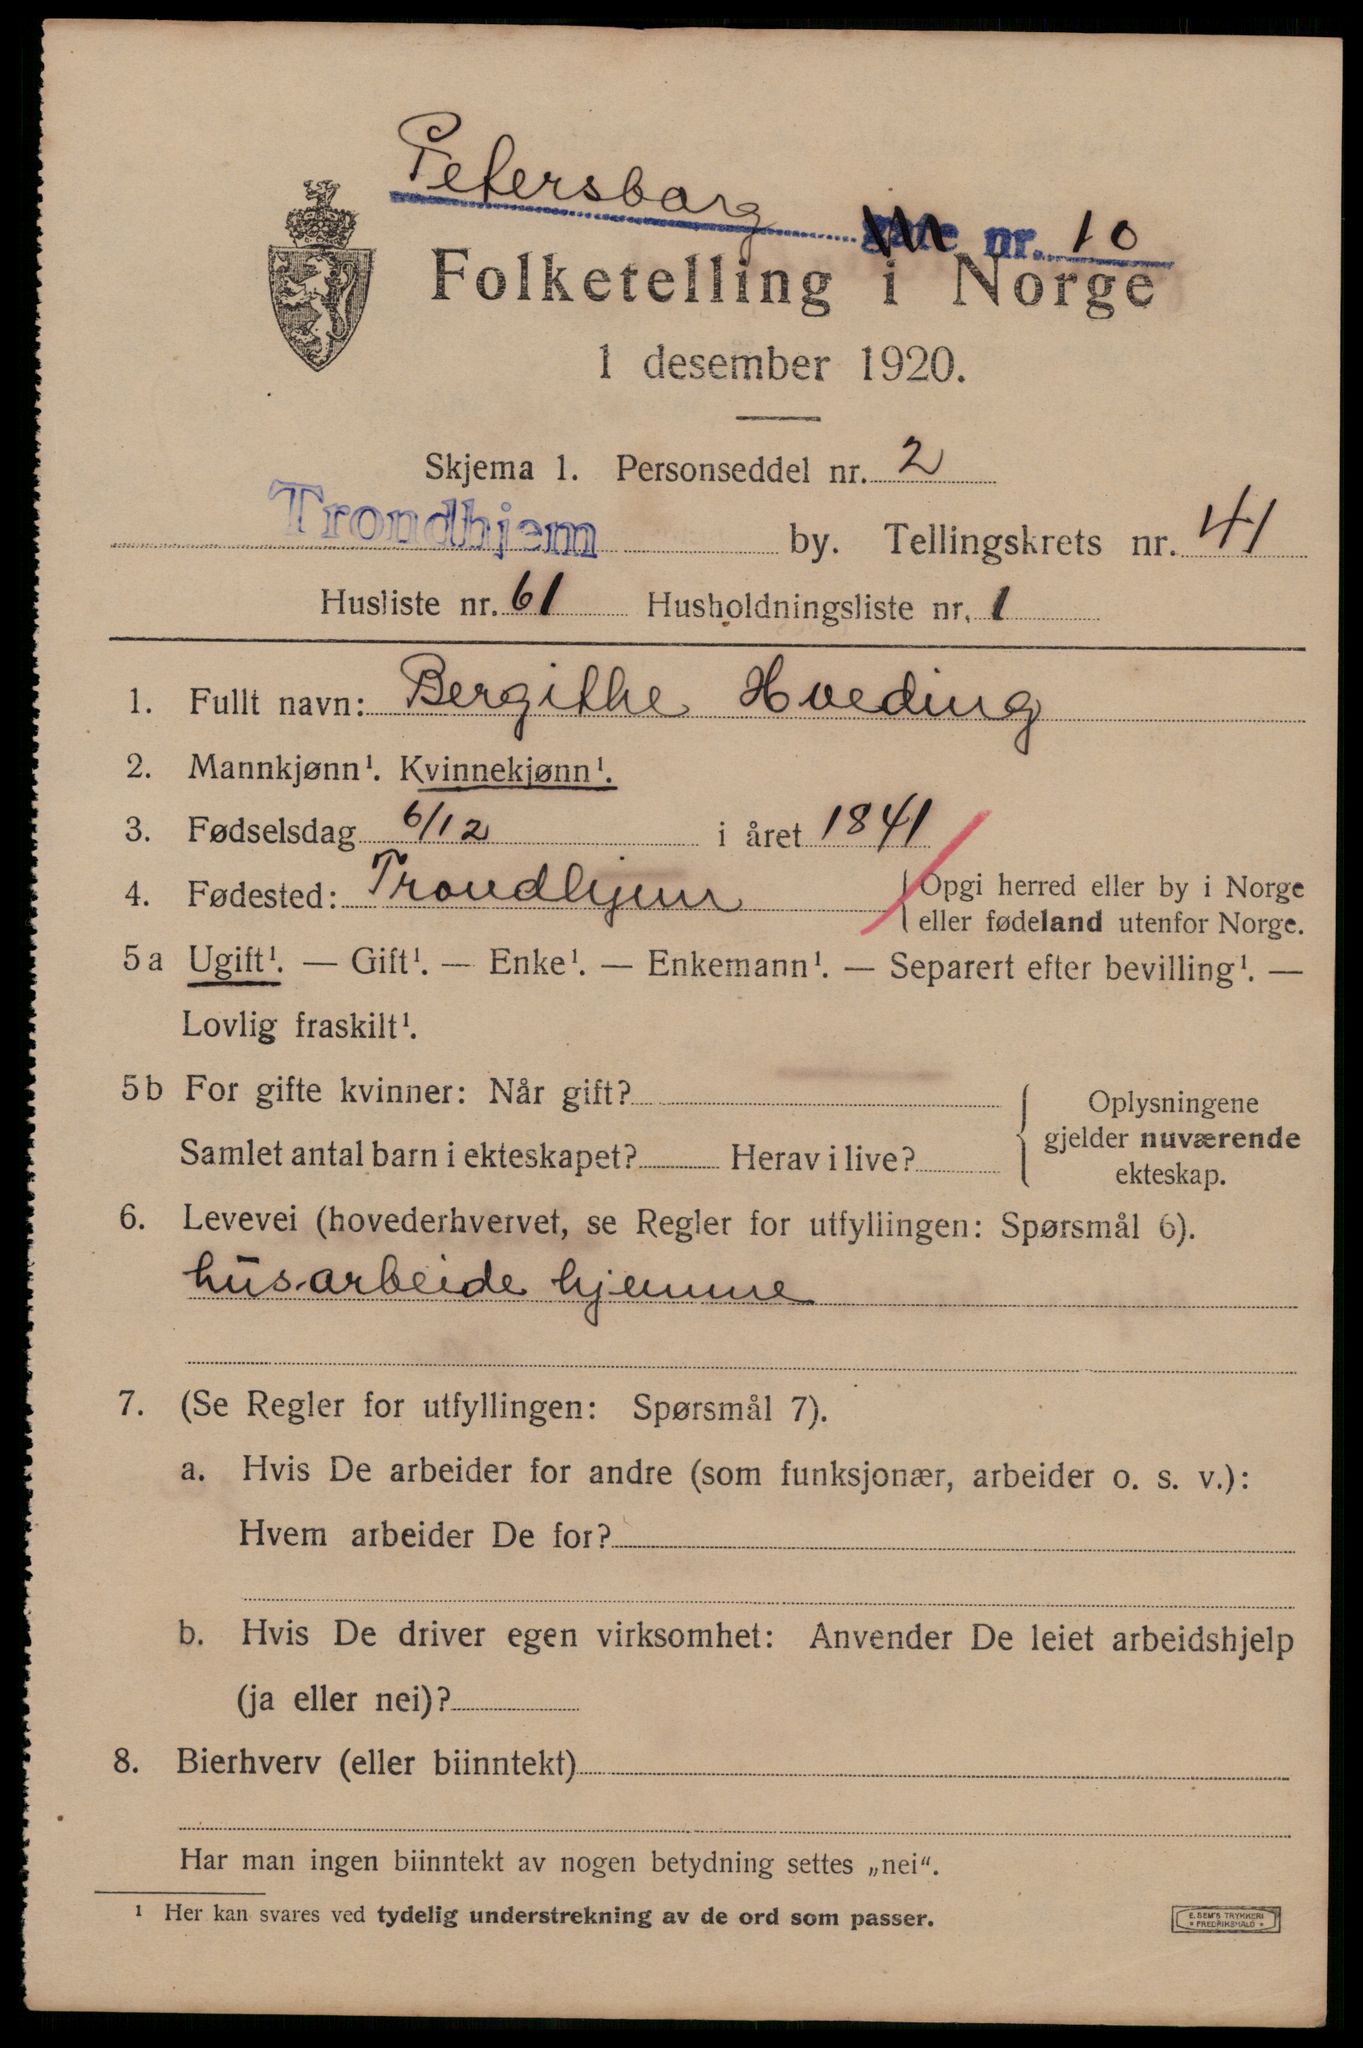 Petersborg gate nr. 10
Folketelling i Norge
1 desember 1920.
Skjema 1. Personseddel nr. 2
Trondhjem by. Tellingskrets nr. 41
Husliste nr. 61 Husholdningsliste nr. 1
1. Fullt navn: Bergithe Hveding
2. Mannkjønn¹. Kvinnekjønn¹.
3. Fødselsdag 6/12 i året 1841
4. Fødested: Trondhjem { Opgi herred eller by i Norge
eller fødeland utenfor Norge.
5 a Ugift¹. — Gift¹. — Enke¹. — Enkemann¹. — Separert efter bevilling¹. —
Lovlig fraskilt¹.
5 b For gifte kvinner: Når gift? { Oplysningene
gjelder nuværende
Samlet antal barn i ekteskapet? Herav i live?
ekteskap.
6. Levevei (hovederhvervet, se Regler for utfyllingen: Spørsmål 6).
husarbeide hjemme
7. (Se Regler for utfyllingen: Spørsmål 7).
a. Hvis De arbeider for andre (som funksjonær, arbeider o. s. v.):
Hvem arbeider De for?
b. Hvis De driver egen virksomhet: Anvender De leiet arbeidshjelp
(ja eller nei)?
8. Bierhverv (eller biinntekt)
Har man ingen biinntekt av nogen betydning settes „nei“.
¹ Her kan svares ved tydelig understrekning av de ord som passer.
E. SEM'S TRYKKERI
* FREDRIKSHALD *